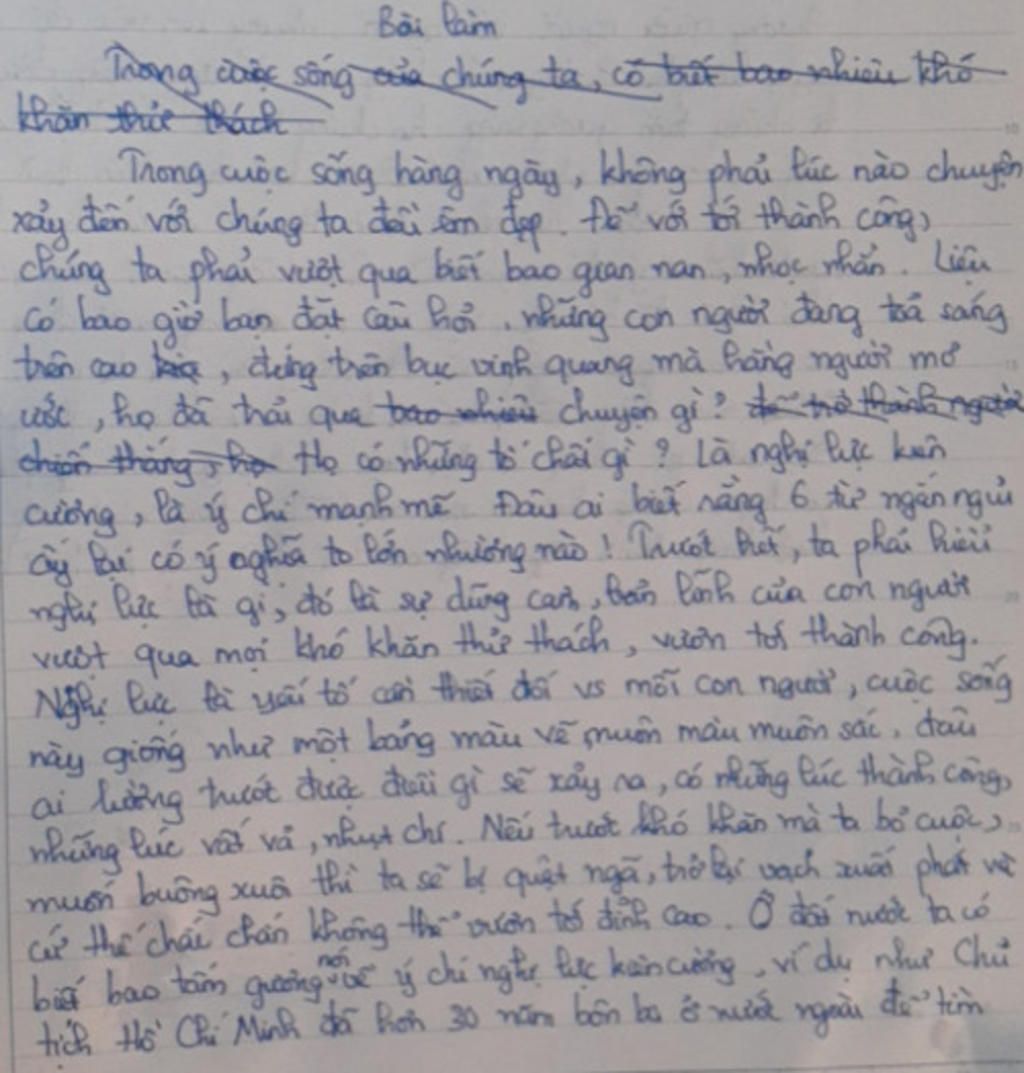 Bài làm
Trong cuộc sống của chúng ta, có biết bao nhiêu khó
khăn thử thách
Trong cuộc sống hàng ngày, không phải lúc nào chuyện
xảy đến với chúng ta đều êm đẹp. Để với tới thành công,
chúng ta phải vượt qua biết bao gian nan, nhọc nhằn. Liệu
có bao giờ bạn đặt câu hỏi, những con người đang toả sáng
trên cao kia, đứng trên bục vinh quang mà hằng người mơ
ước, họ đã trải qua bao nhiêu chuyện gì? để trở thành người
chiến thắng, họ Họ có những tố chất gì? Là nghị lực kiên
cường, là ý chí mạnh mẽ Đâu ai biết rằng 6 từ ngắn ngủi
ấy lại có ý nghĩa to lớn nhường nào! Trước hết, ta phải hiểu
nghị lực là gì, đó là sự dũng cảm, bản lĩnh của con người
vượt qua mọi khó khăn thử thách, vươn tới thành công.
Nghị lực là yếu tố cần thiết đối vs mỗi con người, cuộc sống
này giống như một bảng màu vẽ muôn màu muôn sắc, đâu
ai lường trước được điều gì sẽ xảy ra, có những lúc thành công,
những lúc vất vả, nhụt chí. Nếu trước khó khăn mà ta bỏ cuộc,
muốn buông xuôi thì ta sẽ bị quật ngã, trở lại vạch xuất phát và
cứ thế chán không thể vươn tới đỉnh cao. Ở đất nước ta có
biết bao tấm gương nói về ý chí nghị lực kiên cường, ví dụ như Chủ
tịch Hồ Chí Minh đã hơn 30 năm bôn ba ở nước ngoài để tìm